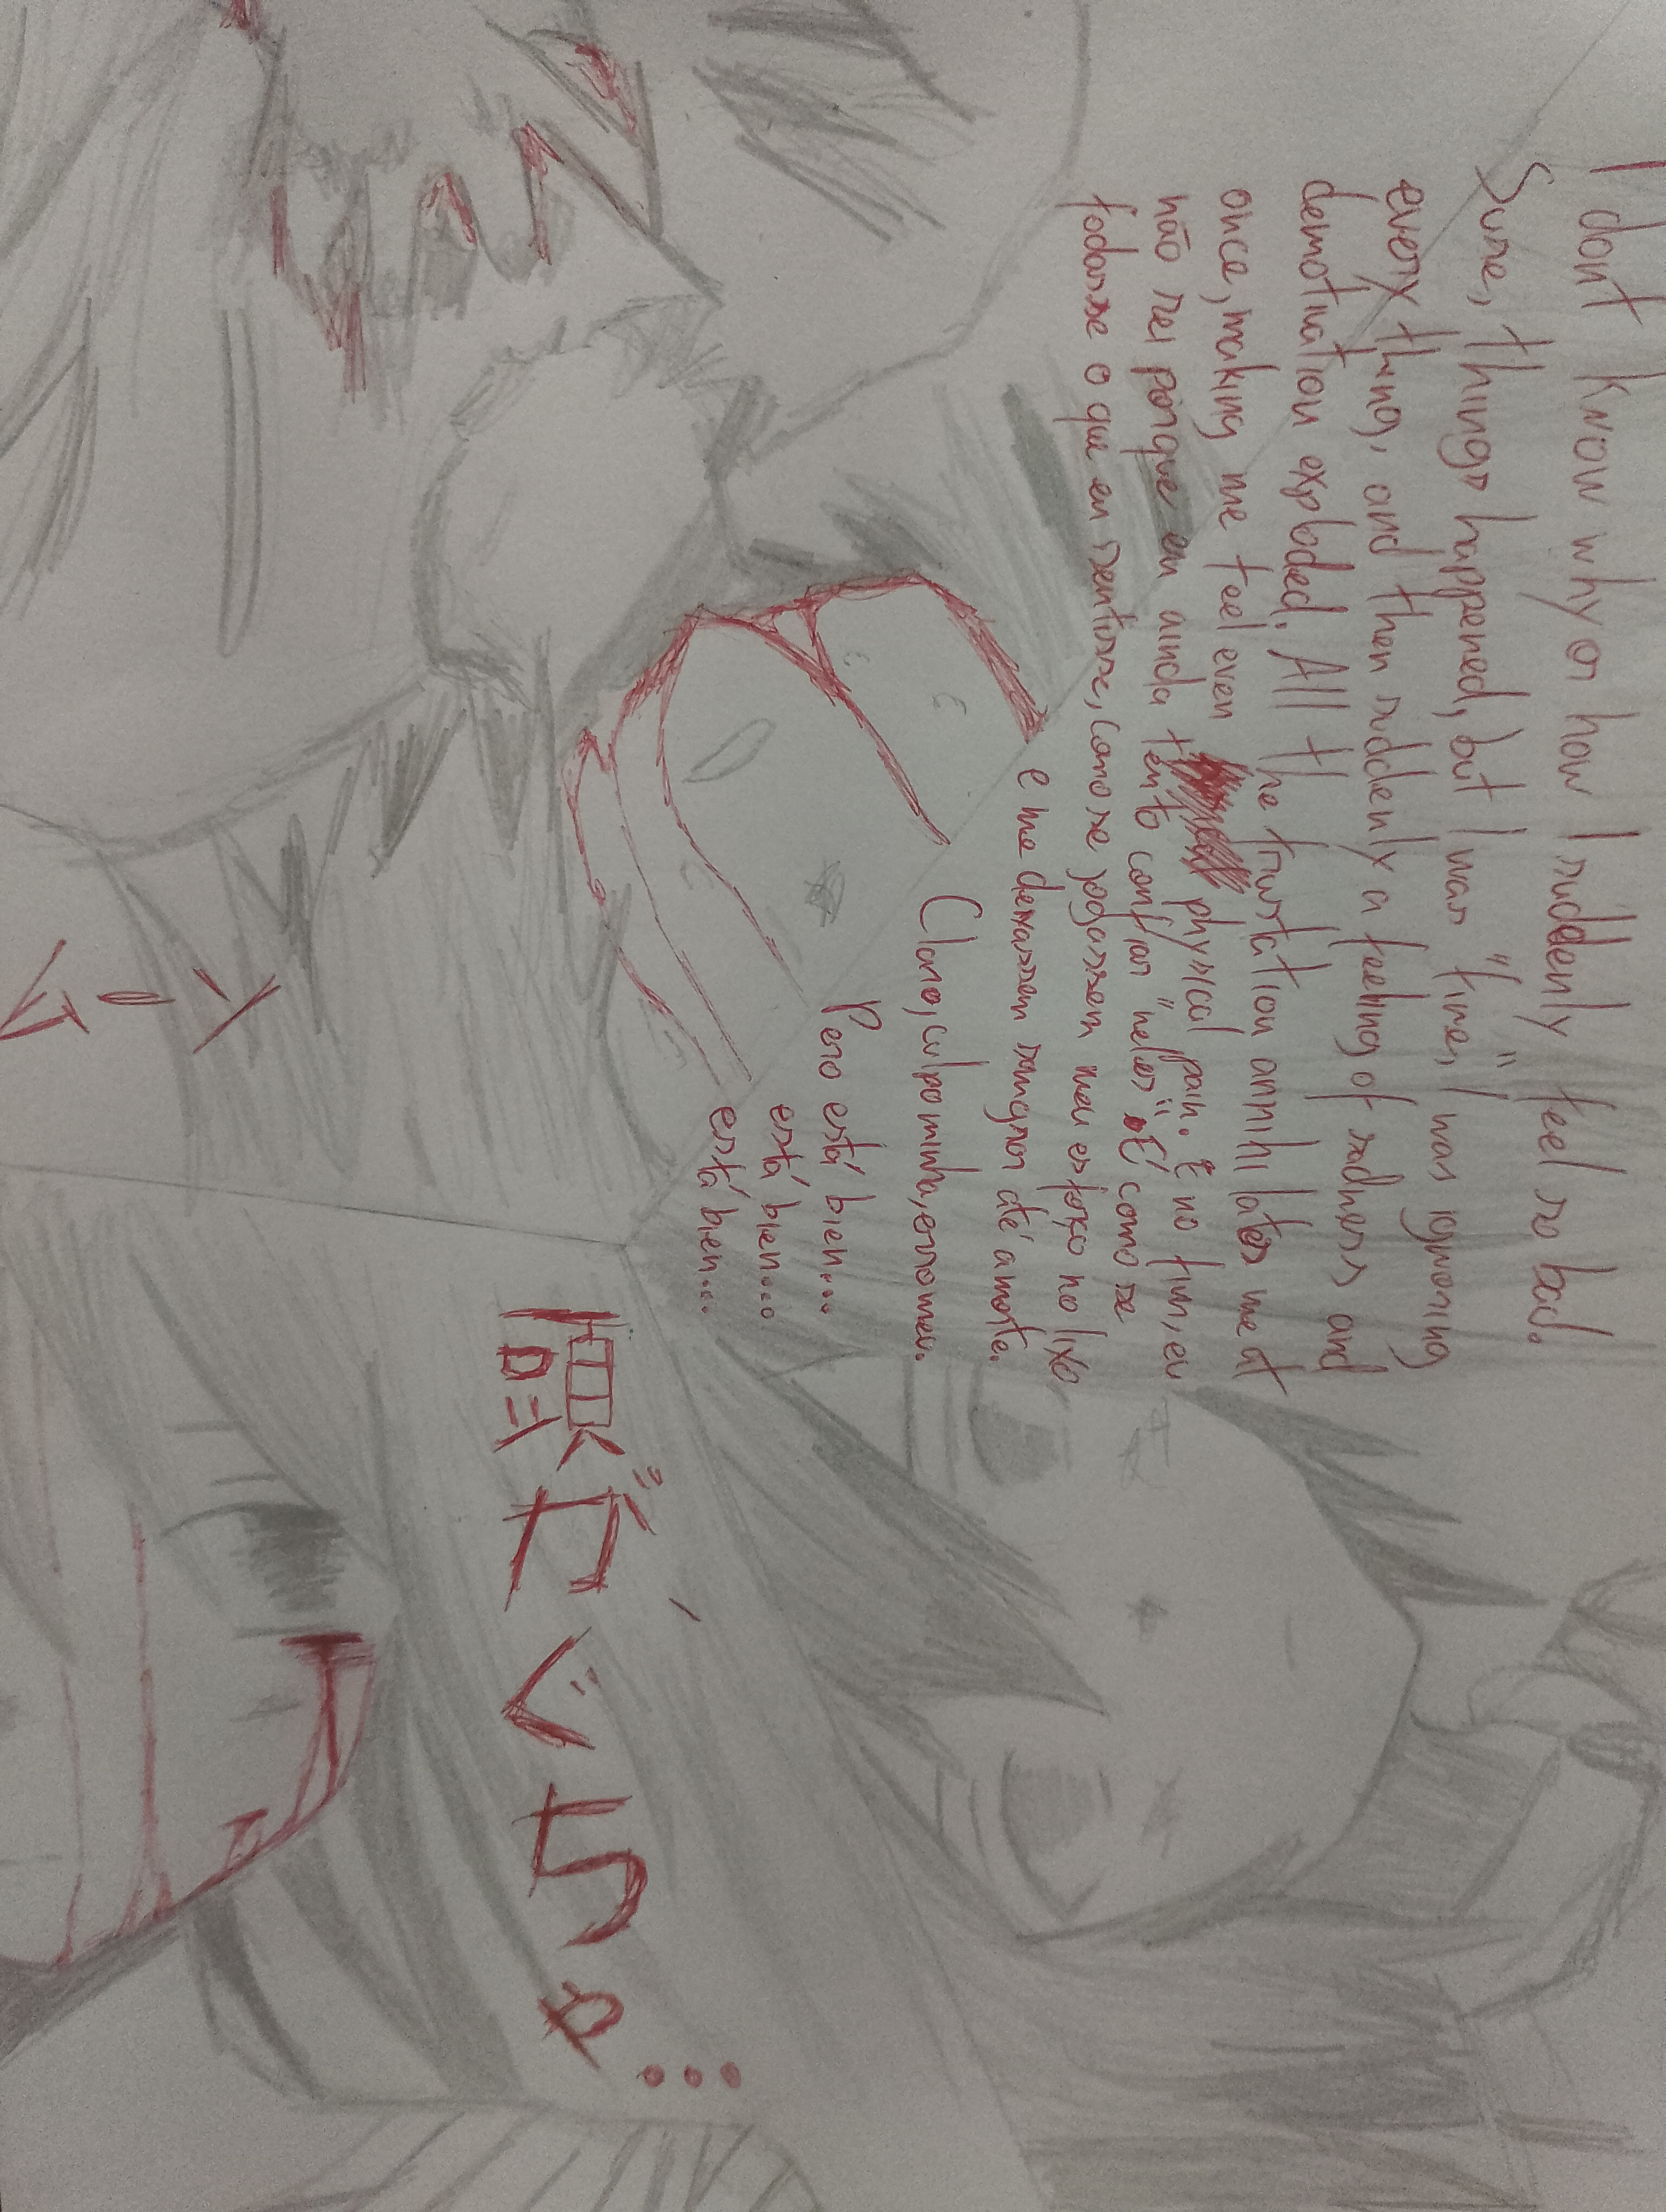 I dont know why or how I suddenly feel so bad.
Sure, things happened, but I was "fine", I was ignoring
every thing, and then suddenly a feeling of sadness and
demotivation exploded. All the frustration annihilates me at
once, making me feel even physical pain. E no fim, eu
não sei porque eu ainda tento confiar "neles". É como se
fodasse o que eu sentisse, como se jogassem meu esforço no lixo
e me deixassem sangrar até a morte.
Claro, culpa minha, erro meu.
Pero está bien...
está bien...
está bien...